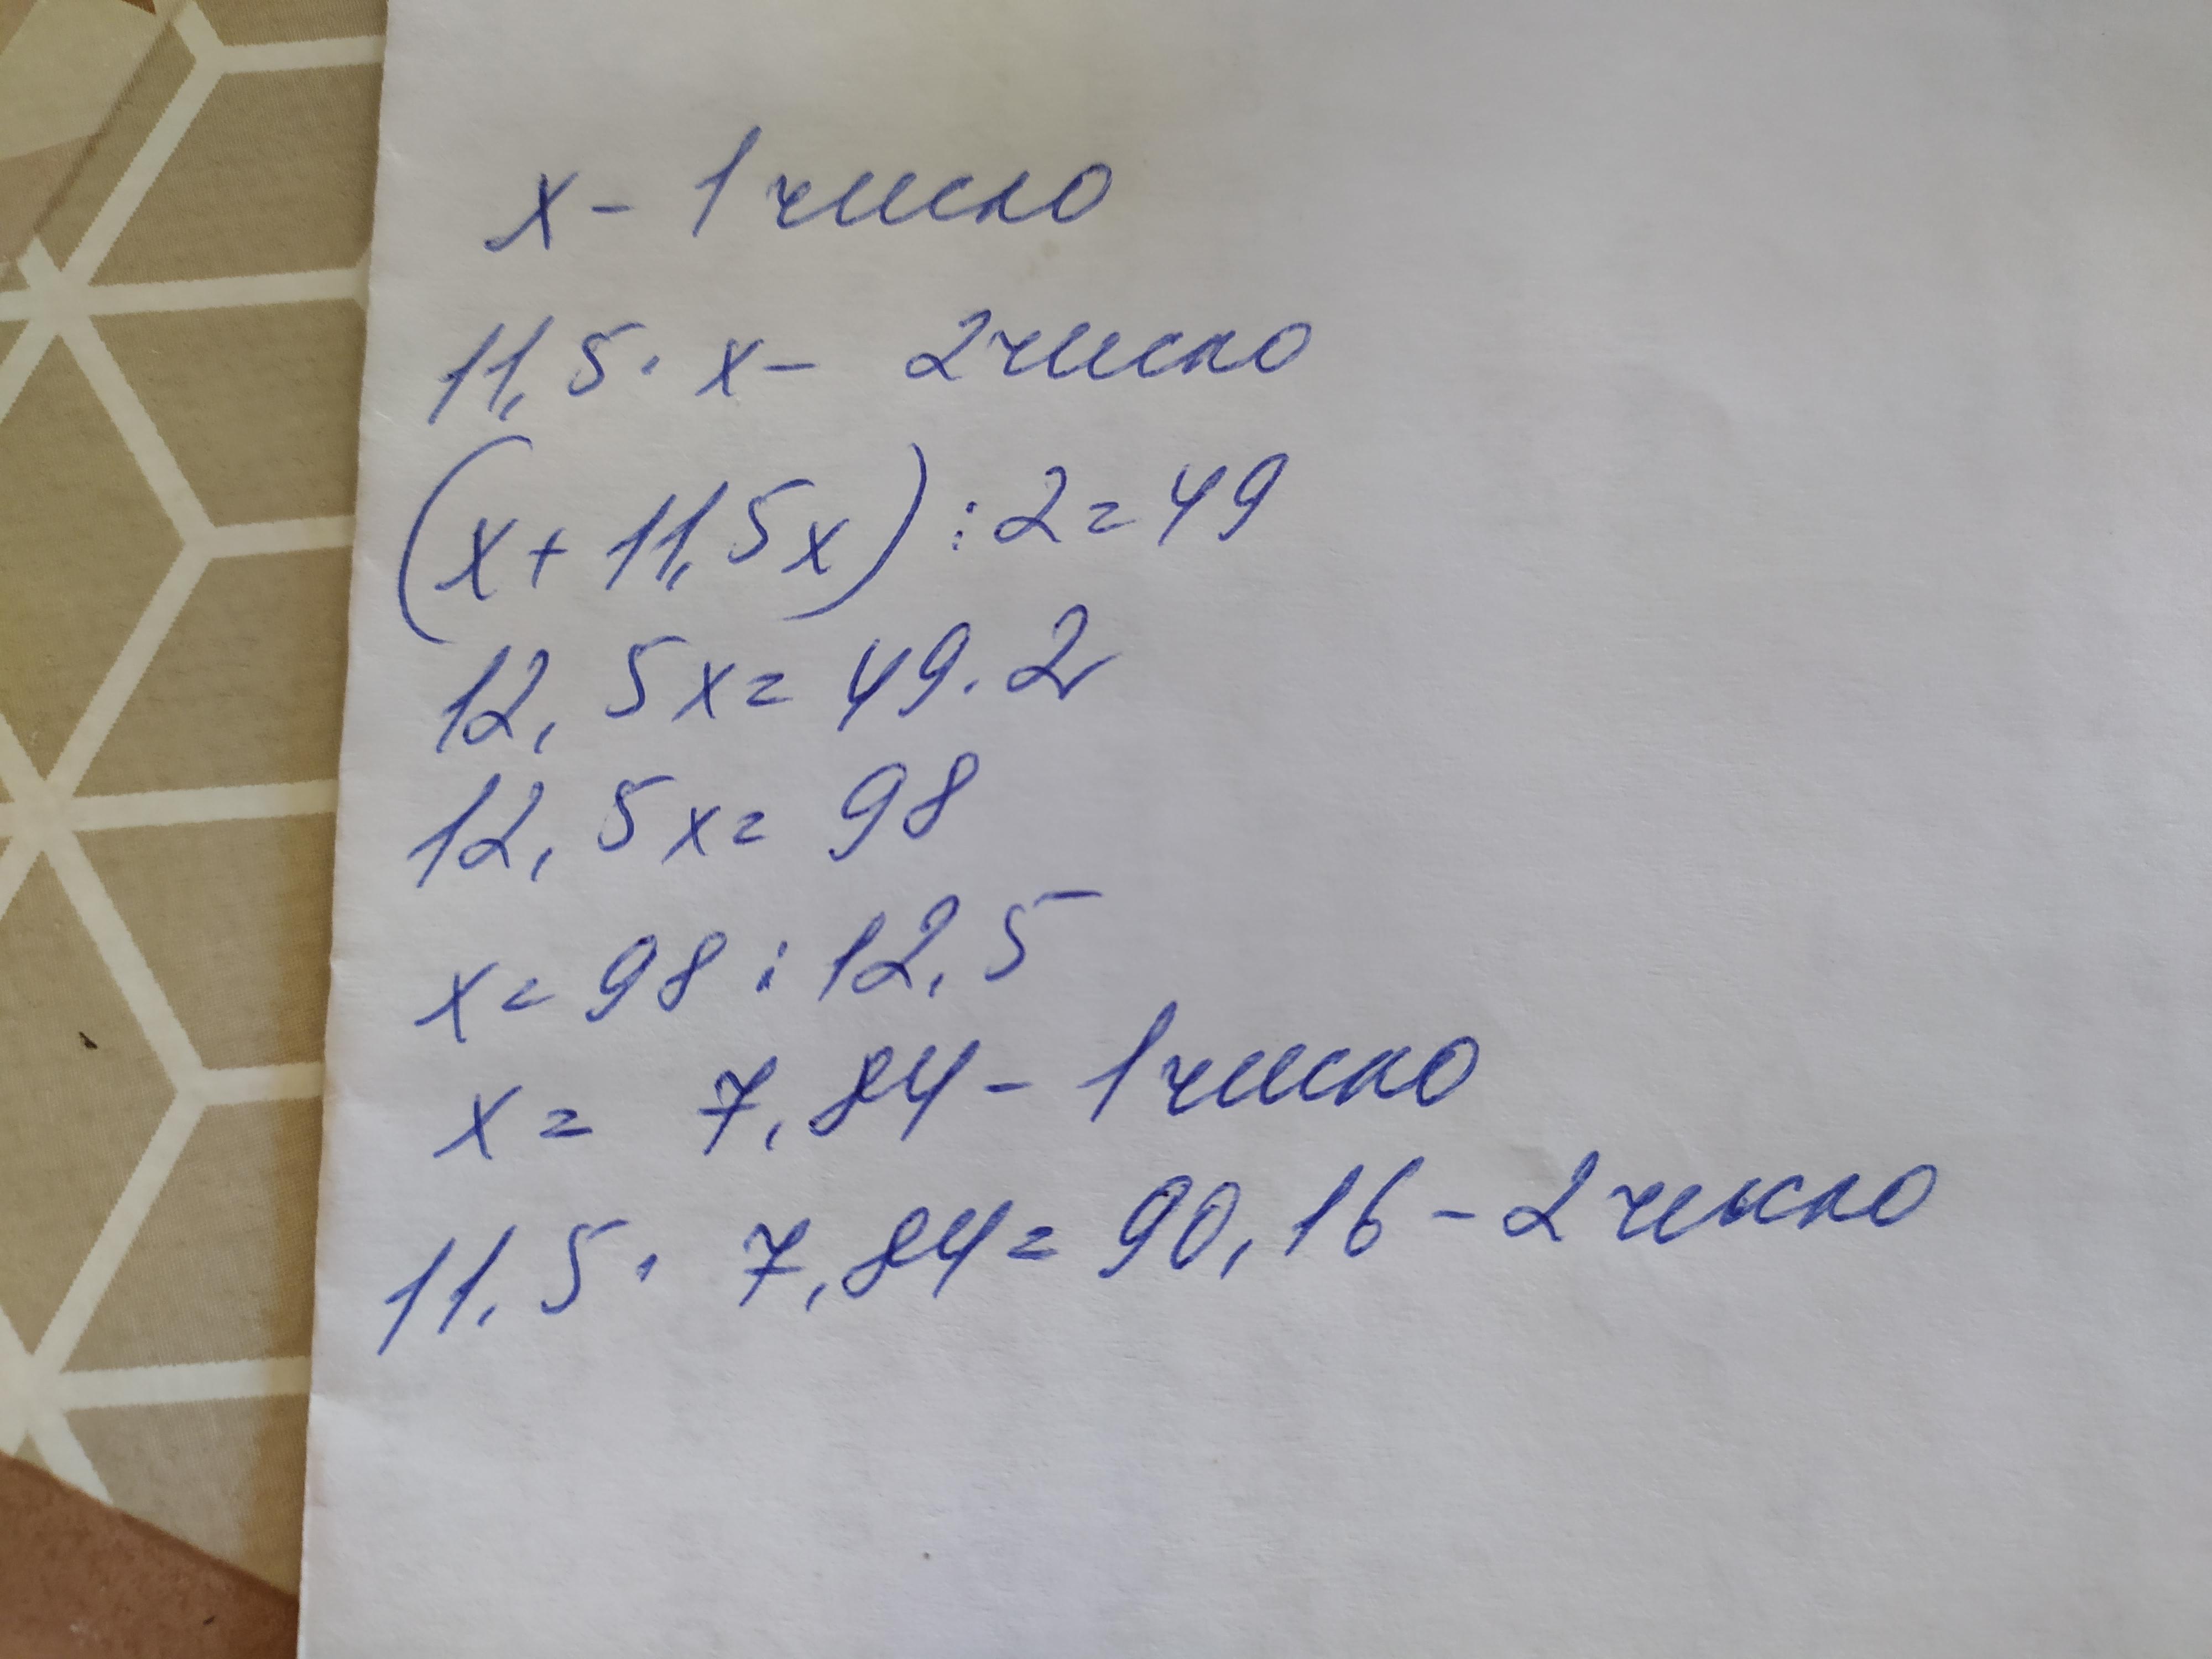 x - 1 число
11,5 · x - 2 число
(x + 11,5x) : 2 = 49
12,5x = 49 · 2
12,5x = 98
x = 98 : 12,5
x = 7,84 - 1 число
11,5 · 7,84 = 90,16 - 2 число